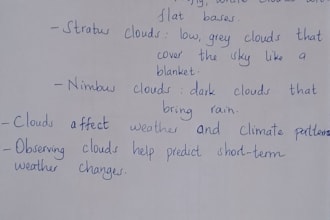 white clouds with
flat bases.
- Stratus clouds: low, grey clouds that
cover the sky like a
blanket.
- Nimbus clouds: dark clouds that
bring rain.
- Clouds affect weather and climate patterns
- Observing clouds help predict short-term
weather changes.